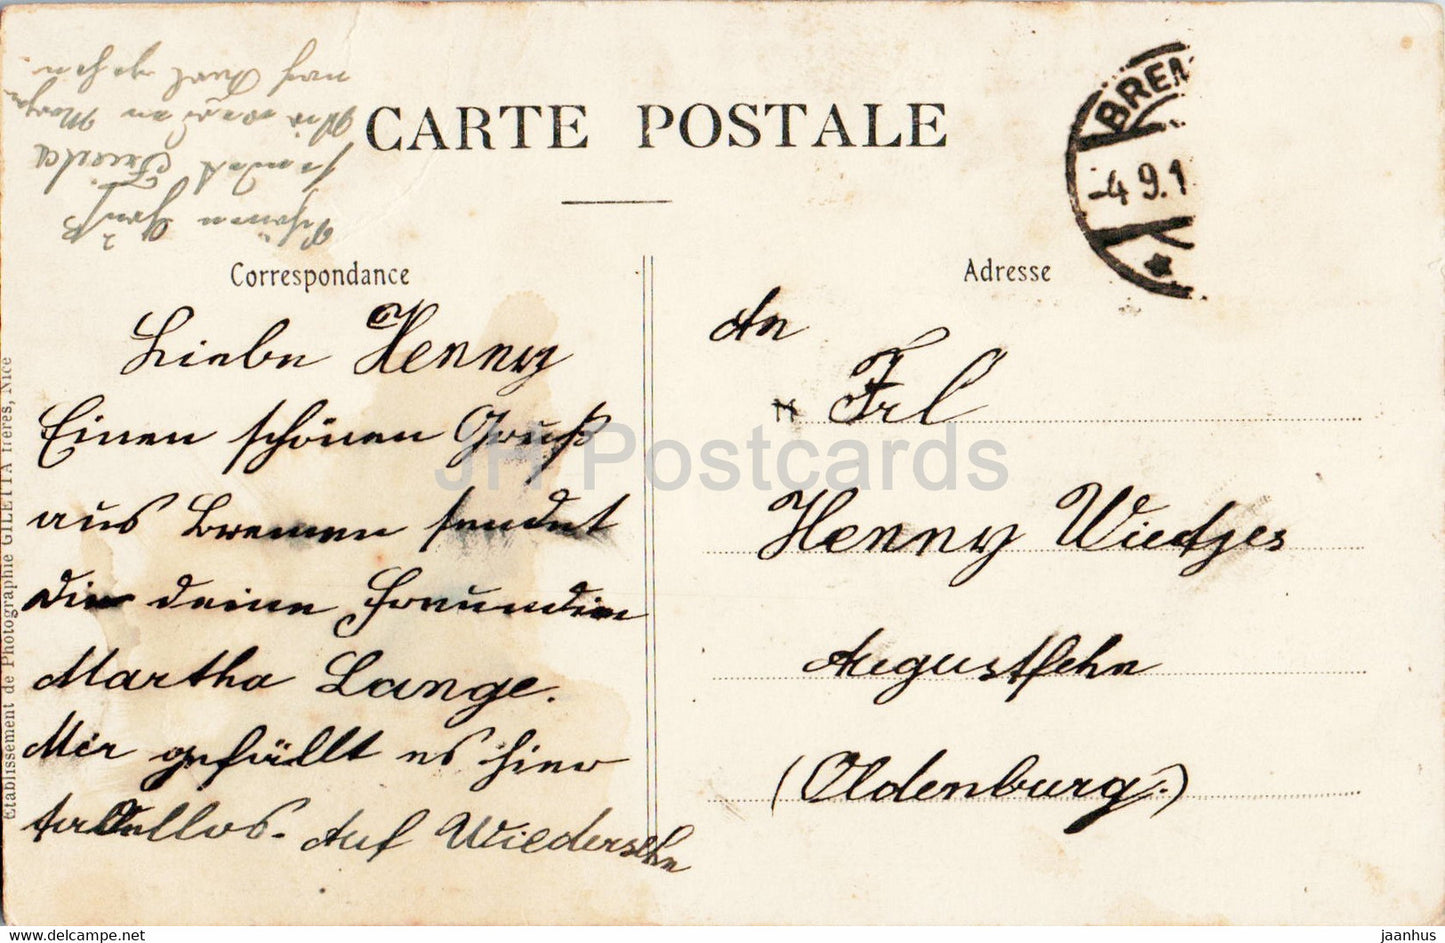 CARTE POSTALE
BREM
-4.9.1
Correspondance
Adresse
Liebe Henny
Einen schönen Gruß
aus Bremen sendet
die deine Freundin
Martha Lange.
Mir gefällt es hier
Auf Wiedersehn
An
Frl
Henny Wiedjes
Augustfehn
(Oldenburg.)
Schönen Gruß
sendet Frieda
Wir wollen Morgen
nach
Etablissement de Photographie GILETTA frères, Nice
JH Postcards
www.delcampe.net
jaanhus